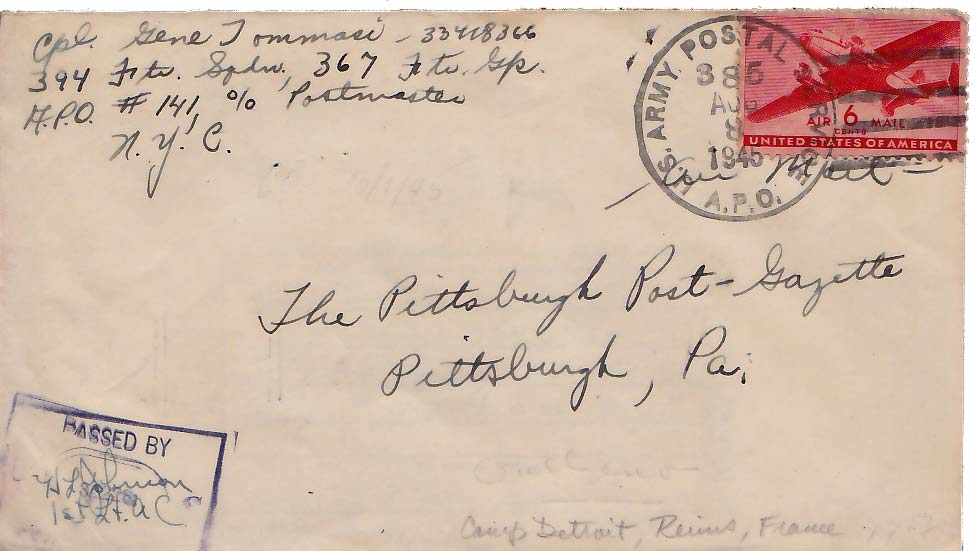 Cpl. Gene Tommasi - 33418366
394 Ftr. Sqdn, 367 Ftr. Gp.
A.P.O. # 141, % Postmaster
N.Y.C.
U.S. ARMY POSTAL SERVICE
385
AUG
8
1945
A.P.O.
AIR 6 MAIL
CENTS
UNITED STATES OF AMERICA
Air Mail
The Pittsburgh Post-Gazette
Pittsburgh, Pa.
PASSED BY
Johnson
1st Lt. A C
Camp Detroit, Reims, France